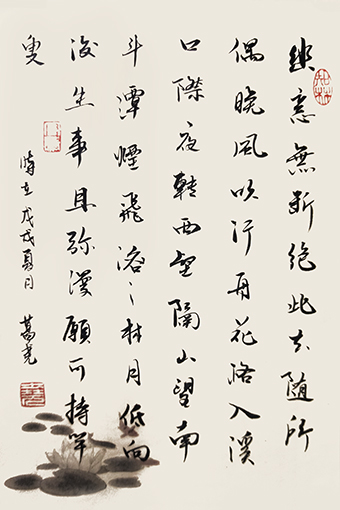 幽意無斷絕此去隨所
偶晚風吹行舟花路入溪
口際夜轉西壑隔山望南
斗潭煙飛溶々林月低向
後生事且弥漫願為持竿
叟
時在戊戌夏月